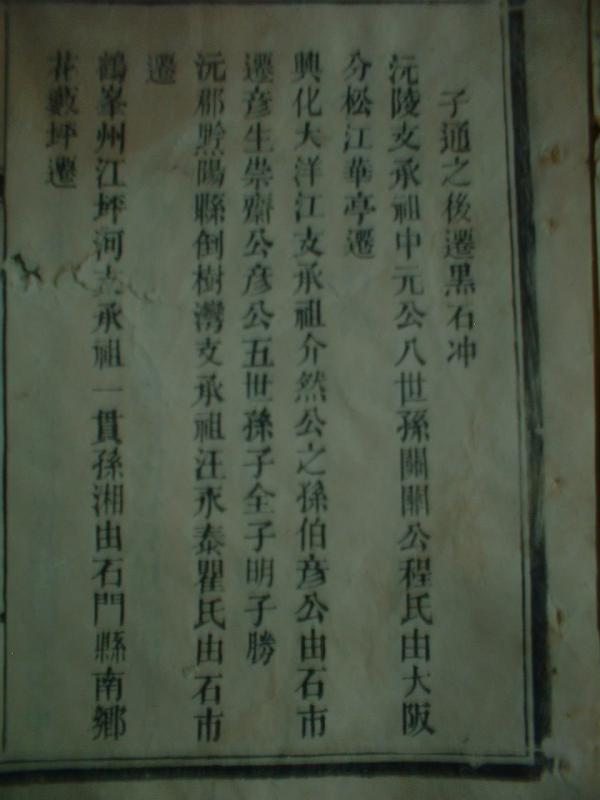 子通之後遷黑石冲
沅陵支承祖中元公八世孫關關公程氏由大阪
分松江華亭遷
興化大洋江支承祖介然公之孫伯彥公由石市
遷彥生崇齋公彥公五世孫子全子明子勝
沅郡黔陽縣倒樹灣支承祖汪永泰瞿氏由石市
遷
鶴峯州江坪河支承祖一貫孫湘由石門縣南鄉
花藪坪遷